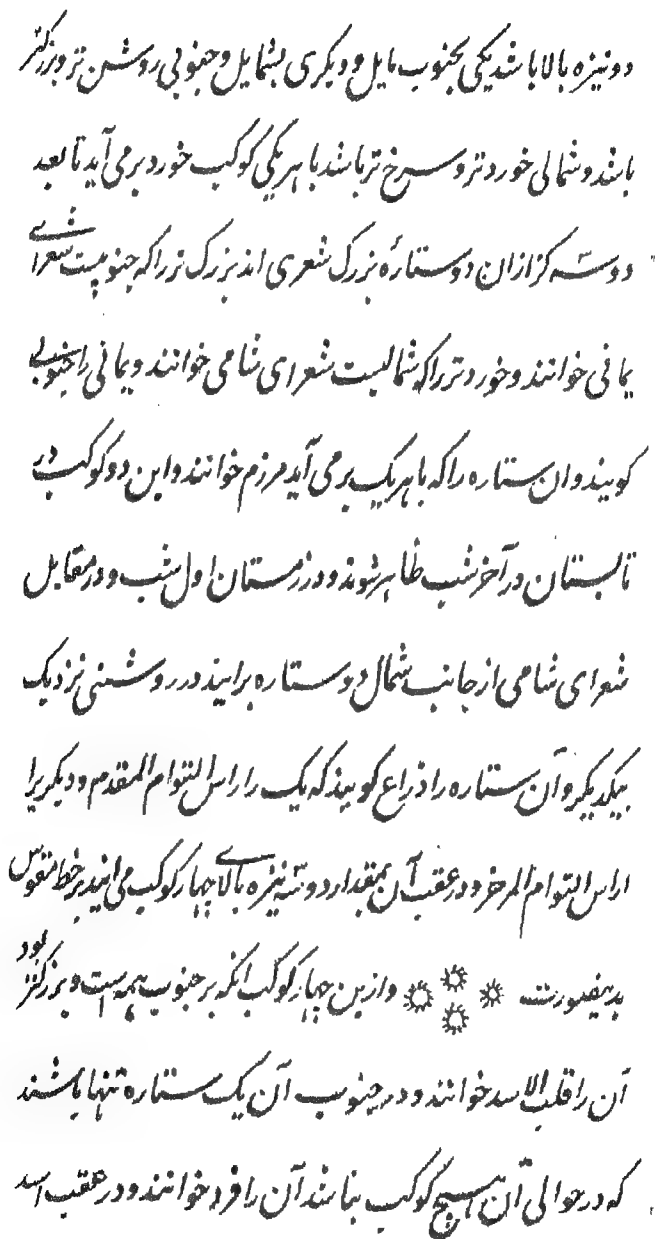 دو نیزه بالا باشد یکی بجنوب مایل و دیکری بشمایل و جنوبی روشن تر و بزرکتر
باشد و شمالی خورد تر و سرخ تر باشد با هر یکی کوکب خورد بر می آید تا بعد
دو سه کز ازان دو ستارهٔ بزرک شعری اند بزرک تر را که جنوبیست شعرای
یمانی خوانند و خورد تر را که شمالیست شعرای شامی خوانند و یمانی را جنوبی
کویند و ان ستاره را که با هر یک بر می آید مرزم خوانند و این دو کوکب در
تابستان در آخر شب ظاهر شوند و در زمستان اول شب و در مقابل
شعرای شامی از جانب شمال دو ستاره برایند در روشنی نزدیک
بیکدیکر و آن ستاره را ذراع کویند که یک را راس التوام المقدم و دیکریرا
راس التوام المرخر و در عقب آن بمقدار دو سه نیزه بالای چهار کوکب می ایند بر خط مقوس
بدینصورت و ازین چهار کوکب انکه بر جنوب همه است و بزرکتر بود
آن را قلب الاسد خوانند و در جنوب آن یک ستاره تنها باشند
که در حوالی آن هیچ کوکب نباشد آن را فرد خوانند و در عقب اسد